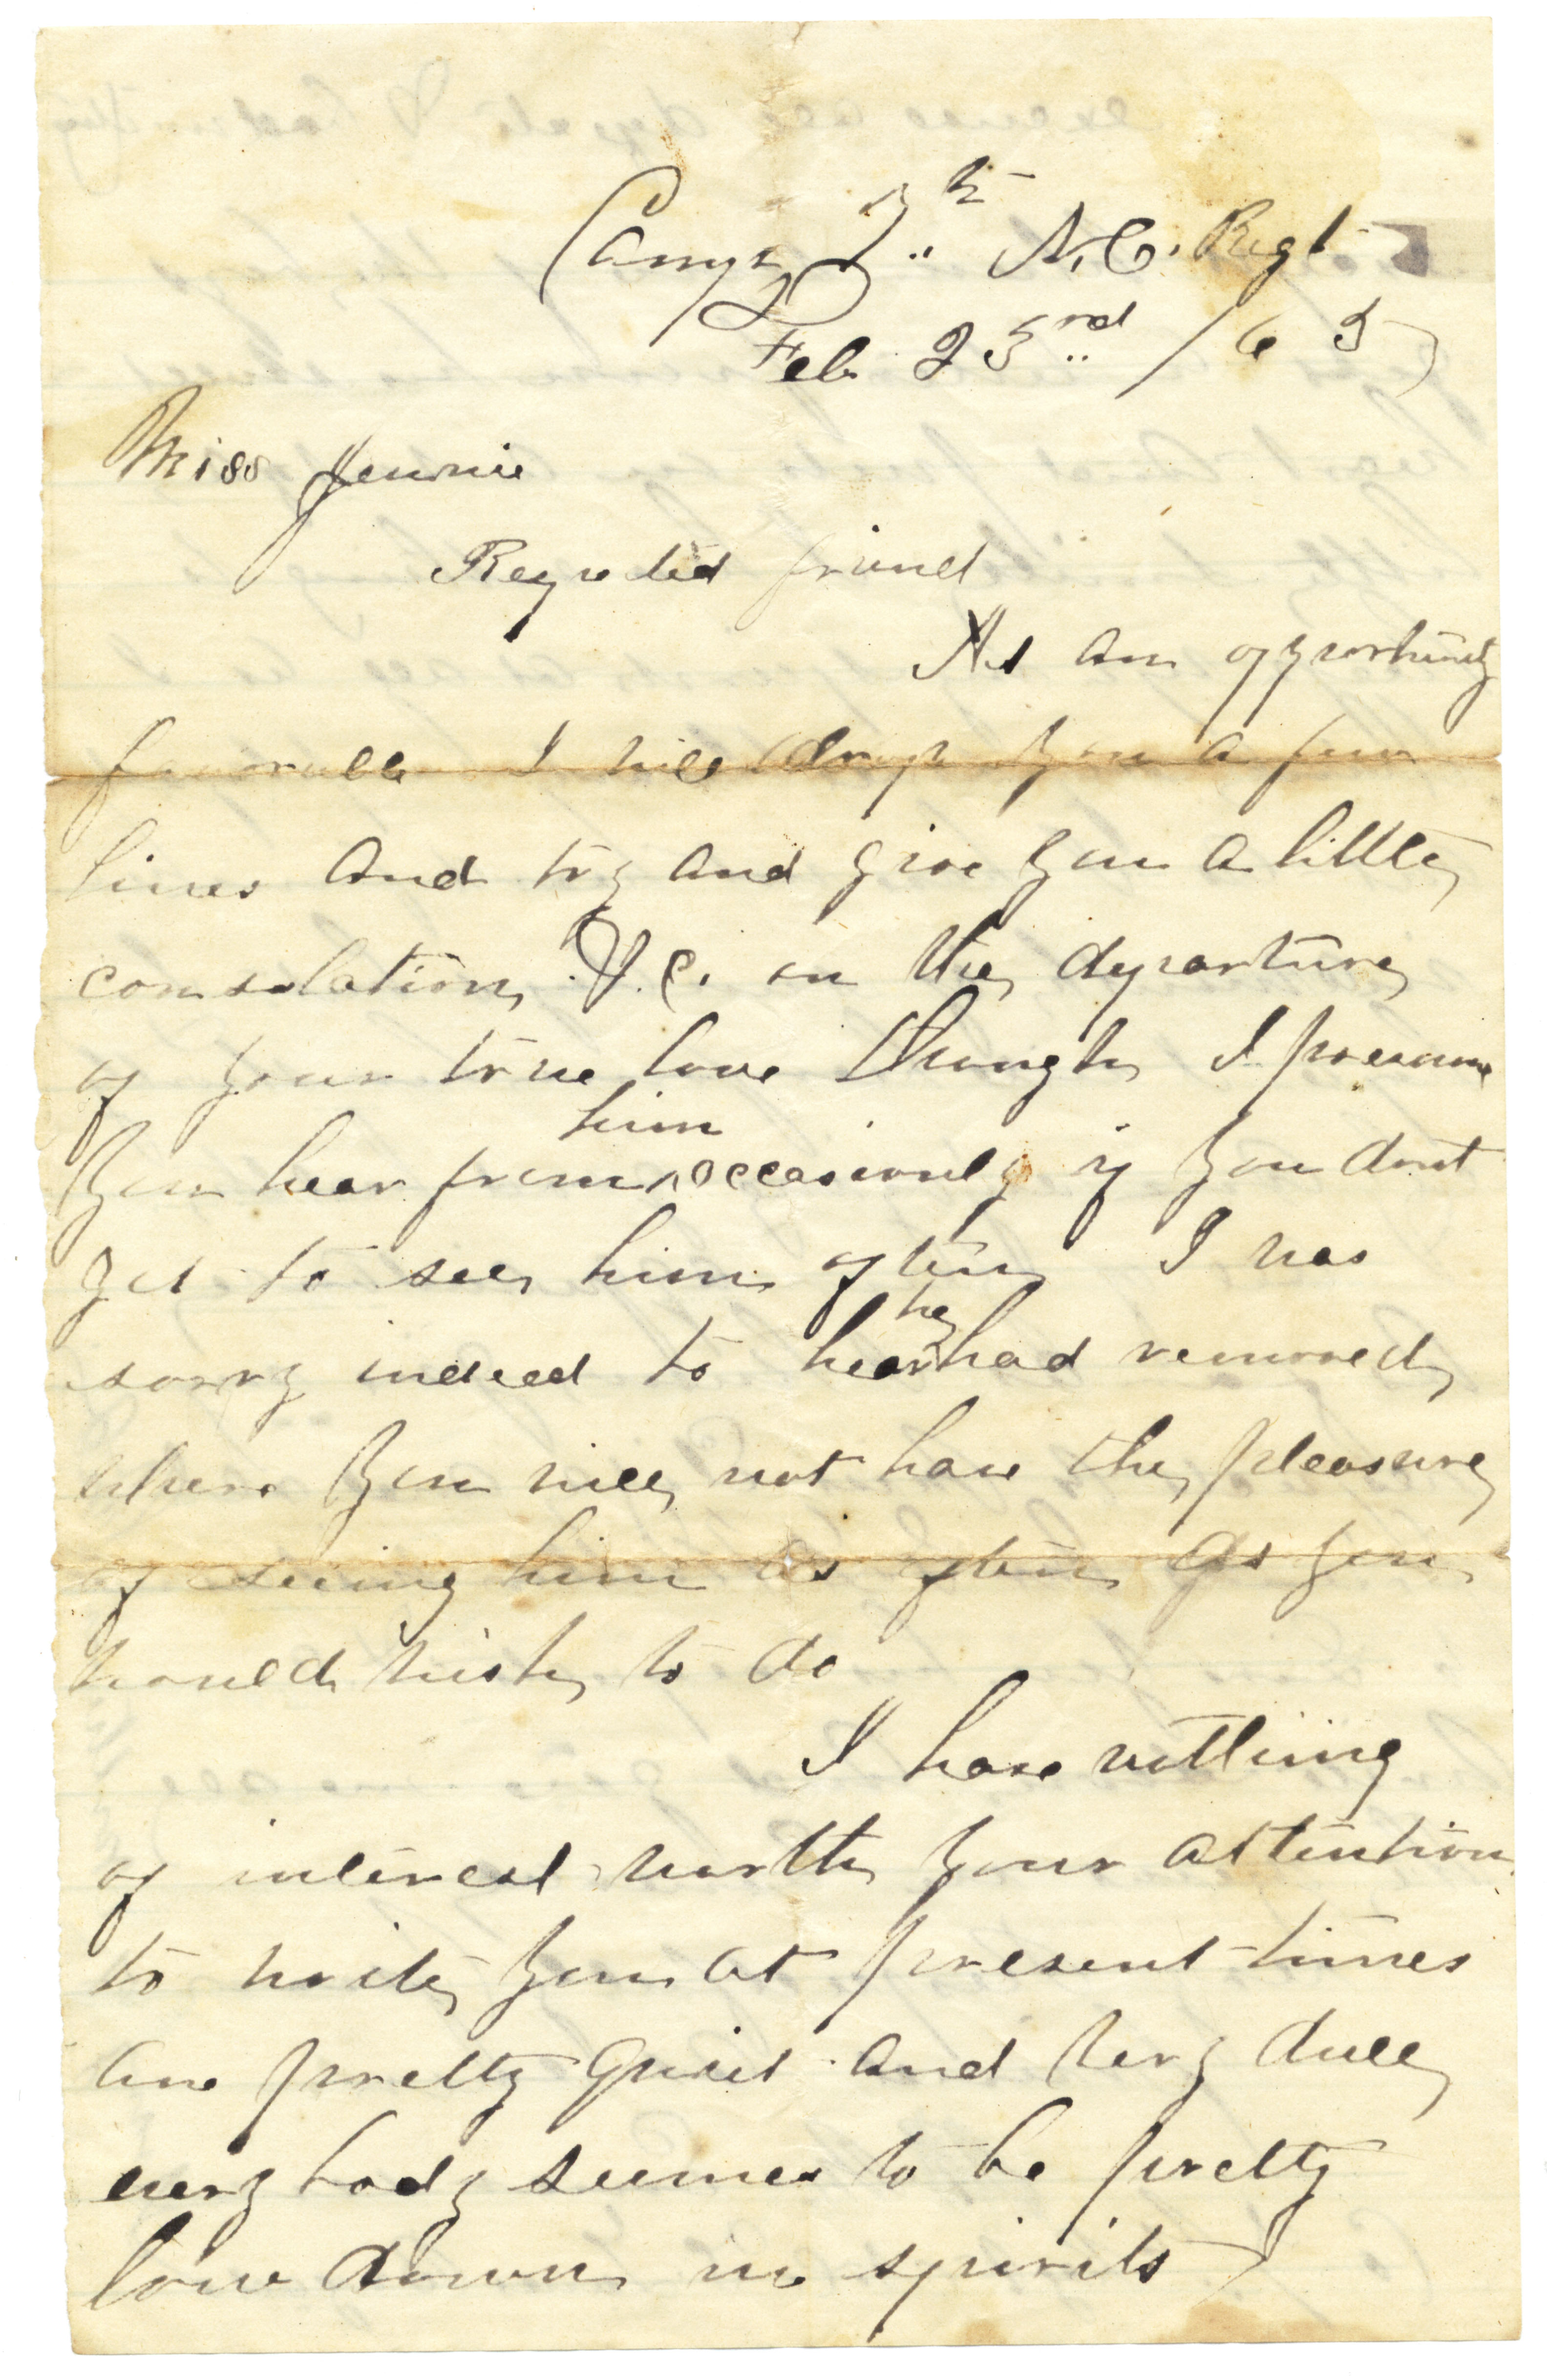 Camp 7th N.C. Regt
Feb 23rd / 65
Miss Jennie
Regreted friend
As an opportunity
favorable I will drop you a few
lines and try and give you a little
consolation &.C. on the departure
of your true love though I presume
you hear from him occasionly if you dont
get to see him often I was
sorry indeed to hear he had removed
where you will not have the pleasure
of seeing him as often as you
would wish to do
I have nothing
of interest worth your attention
to write you at present times
are pretty quiet and very dull
every body seemes to be pretty
low down in spirits